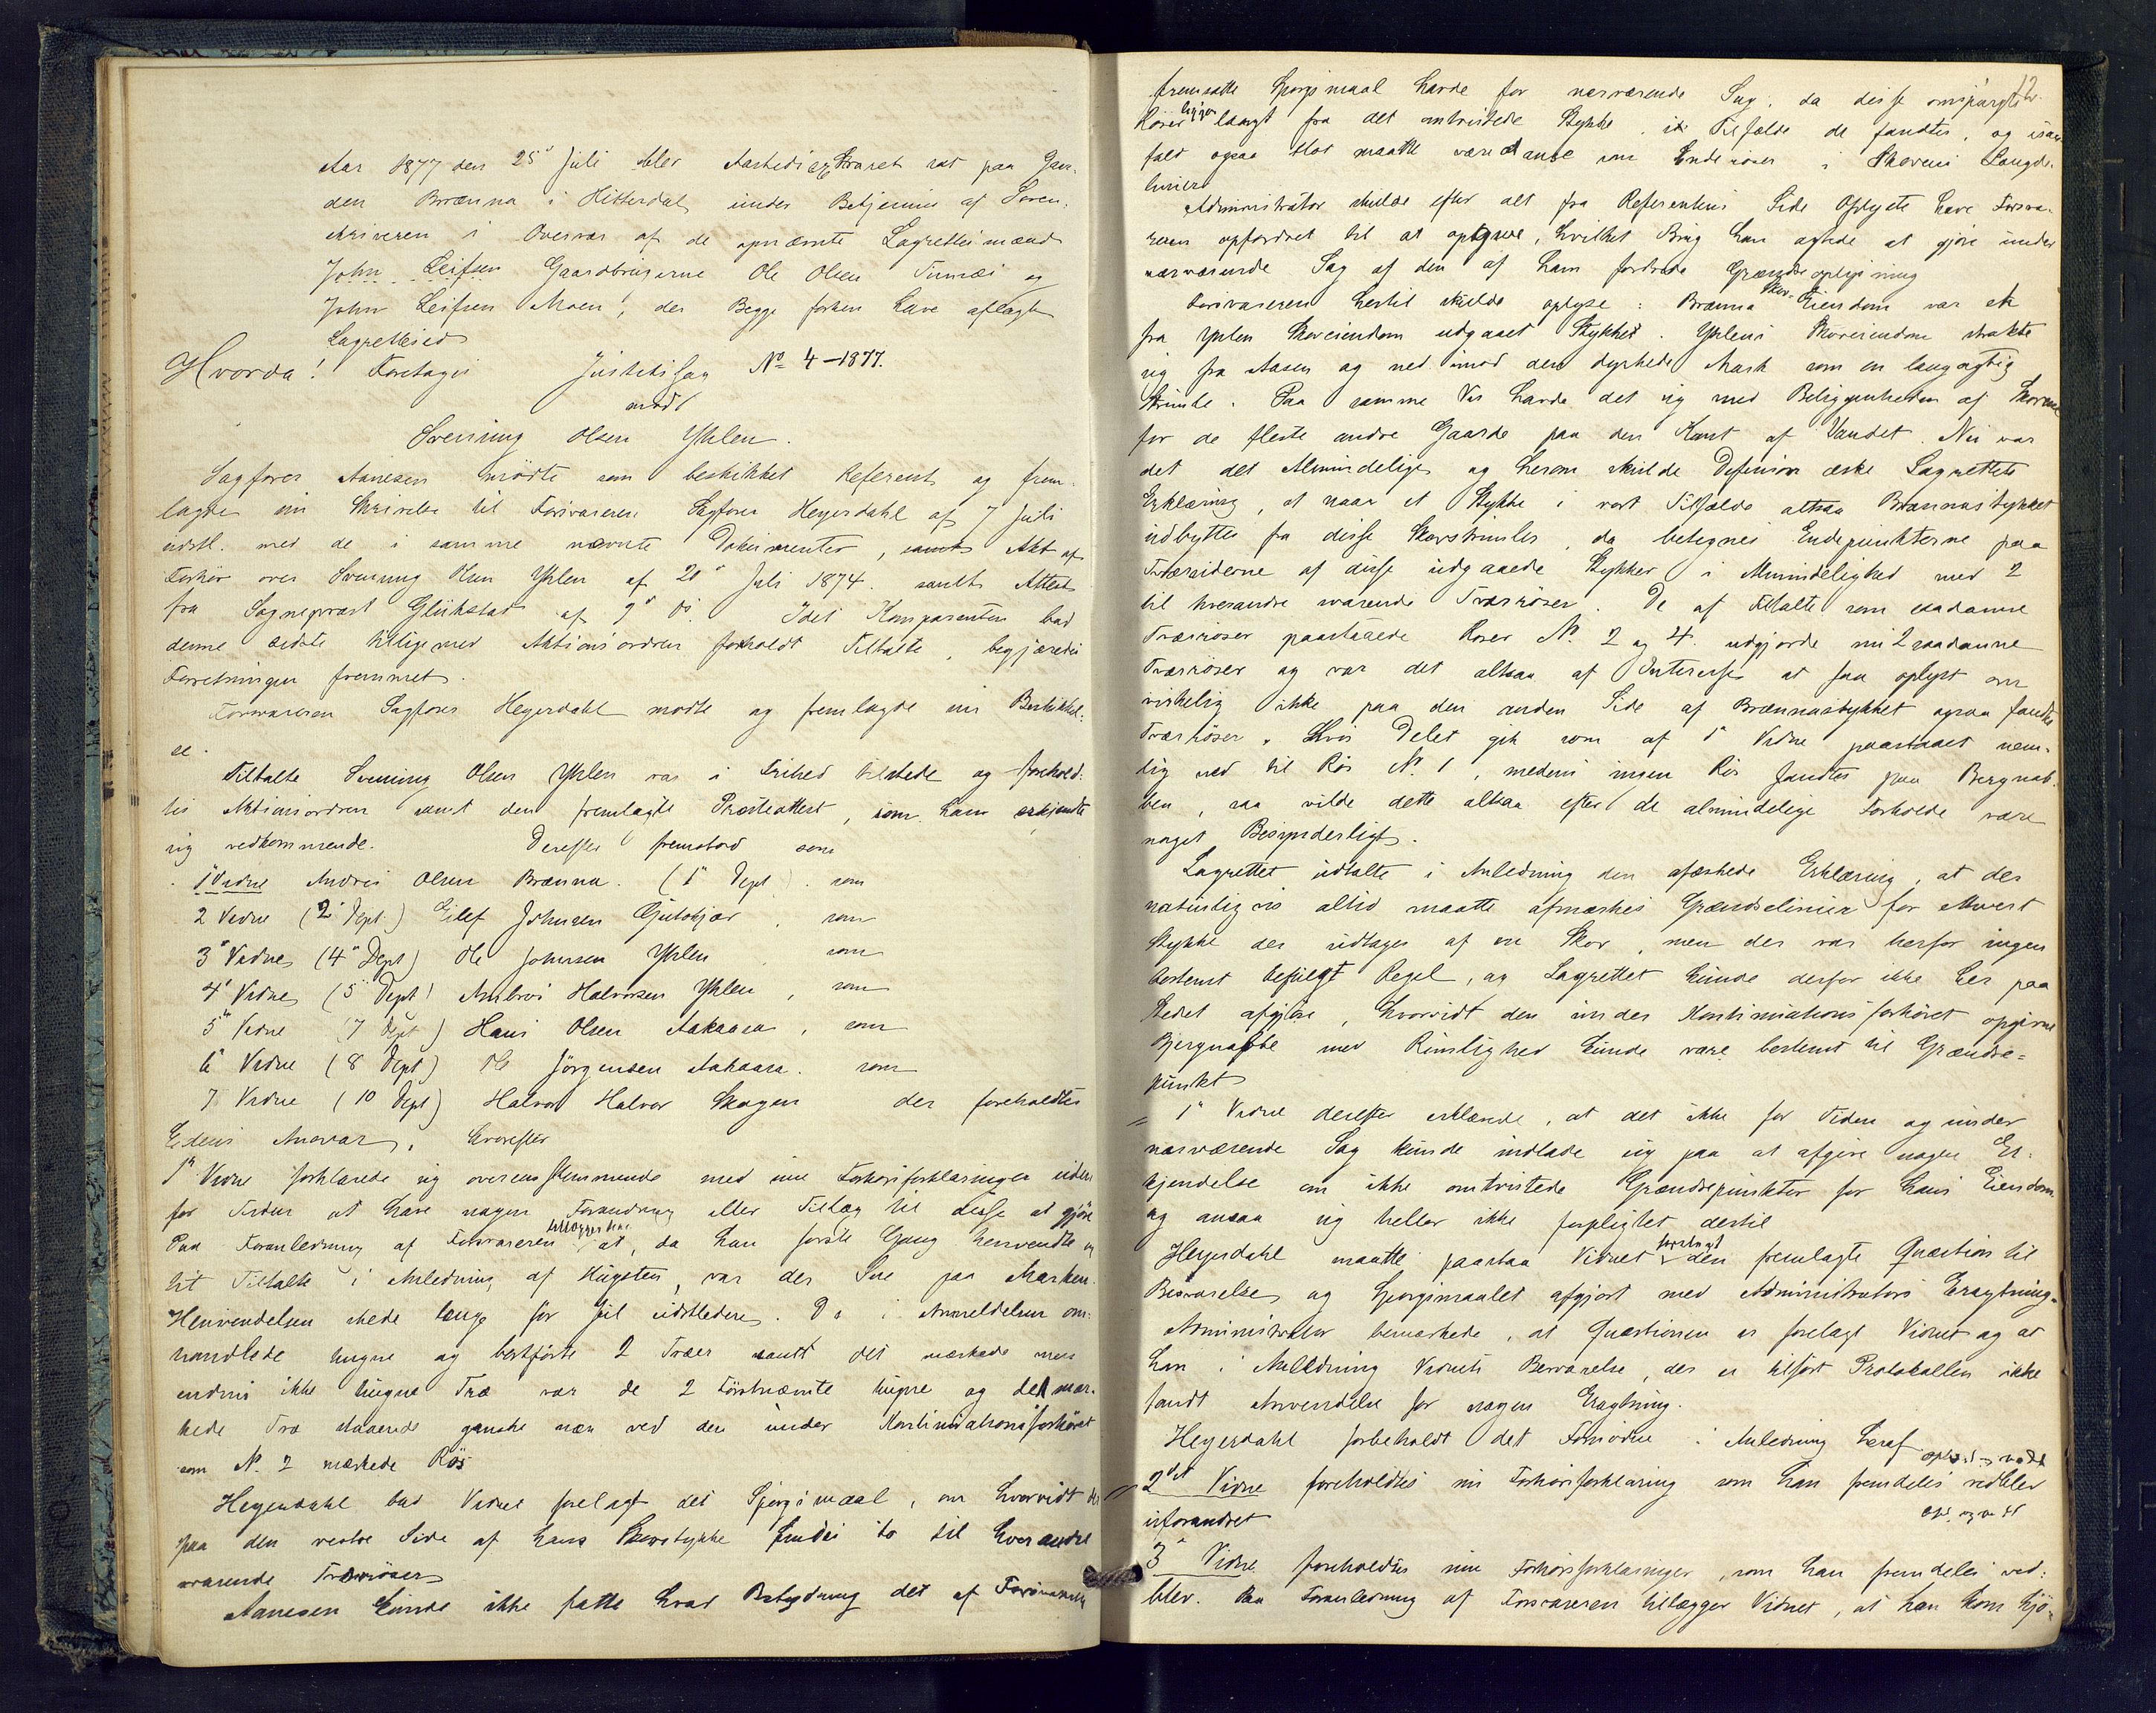 Aar 1877 den 25de Juli blev Aastedsextraret sat paa Gaar-
den Brænna i Hitterdal under Betjening af Soren-
skriveren i Overvær af de opnævnte Lagrettesmænd
John Leifsen Gaardbrugerne Ole Olsen Tinnæs og
John Leifsen Moen, der Begge forhen have aflagt
Lagrettesed
Hvorda! Foretages Justitssag No 4-1877.
mod
Svenning Olsen Yhlen.
Sagfører Aanesen mødte som beskikket Referent og frem-
lagde sin Skrivelse til Forsvareren Sagfører Heyerdahl af 7 Juli
sidstl. med de i samme nævnte Dokumenter, samt Akt af
Forhør over Svenning Olsen Yhlen af 20de Juli 1874. samt Attest
fra Sogneprest Glükstad af 9de ds. Idet Komparenten bad
denne sidste tilligemed Aktionsordren foreholdt Tiltalte, begjæredes
Forretningen fremmet.
Forsvareren Sagfører Heyerdahl mødte og fremlagde sin Beskikkel-
se.
Tiltalte Svenning Olsen Yhlen var i Frihed tilstede og forehold-
tes Aktionsordren samt den fremlagte Præsteattest, som han erkjendte
sig vedkommende. Derefter fremstod som
1ste Vidne Andres Olsen Brænna. (1ste Dept). som
2 Vidne (2de Dept.) Eilef Johnsen Gutskjær, som
3de Vidne (4de Dept) Ole Johnsen Yhlen som
4de Vidne (5te Dept) Ambros Halvorsen Yhlen, som
5te Vidne (7 Dept) Hans Olsen Aakaasa, som
6te Vidne (8 Dept) Ole Jörgensen Aakaasa. som
7 Vidne (10 Dept) Halvor Halvor Skogen der foreholdtes
Edens Ansvar. hvorefter
1ste Vidne forklarede sig overensstemmende med sine Forhørsforklaringer uden
for Tiden at have nogen Forandring eller Tillæg til disse at gjøre
Paa Foranledning af Forsvareren tillægges dens at, da han første Gang henvendte sig
til Tiltalte i Anledning af Hugsten, var der Sne paa Marken.
Henvendelsen skede længe før Jul sidstleden. De i Anmeldelsen om-
handlede hugne og bortførte 2 Træer samt det mærkede men
endnu ikke hugne Træ var de 2 førstnævnte hugne og det mær-
kede Træ staaende ganske nær ved den under Kontinuationsforhøret
som No 2 mærkede Rös
Heyerdahl bad Vidnet forelagt det Spørgsmaal, om hvorvidt der
paa den vestre Side af hans Skovstykke findes to til hverandre
svarende Tværrøser
Aanesen kunde ikke fatte hvad Betydning det af Forsvareren
12
fremsatte Spørgsmaal havde for nærværende Sag, da disse omspurgte
Røser ligger langt fra det omtvistede Stykke, i Tilfælde de fandtes, og isaa-
fald ogsaa blot maatte være at anse som Enderøser i Skovens Længde-
linier
Administrator skulde efter alt fra Referentens Side Oplyste have Forsva-
reren opfordret til at opgive, hvilket Brug han agtede at gjøre under
nærværende Sag af den af ham fordrede Grændseoplysning
Forsvareren hertil skulde oplyse: Brænna Skov-Eiendom var et
fra Yhlen Skoveiendom udgaaet Stykke. Yhlens Skoveiendom strakte
sig fra Aasen og ned imod den dyrkede Mark som en langagtig
Strimle. Paa samme Vis havde det sig med Beliggenheden af Skovene
for de fleste andre Gaarde paa den Kant af Vandet. Nu var
det det Almindelige og herom skulde Defensor æske Lagrettets
Erklæring, at naar et Stykke i vort Tilfælde altsaa Brænnastykket
udbyttes fra disse Skovstrimler, da betegnes Endepunkterne paa
Tværsiderne af disse udgaaede Stykker i Almindelighed med 2
til hverandre svarende Tværrøser. De af Tiltalte som saadanne
Tværrøser paastaaede Røser No. 2 og 4 udgjorde nu 2 saadanne
Tværrøser og var det altsaa af Interesse at faa oplyst om
virkelig ikke paa den anden Side af Brænnastykket ogsaa fandtes
Tværrøser. Hvis Delet gik som af 1ste Vidne paastaaet nem-
lig ned til Rös No. 1, medens ingen Rös fandtes paa Bergnab-
ben, saa vilde dette altsaa efter de almindelige Forholde være
noget Besynderligt.
Lagrettet udtalte i Anledning den afæskede Erklæring, at der
naturligvis altid maatte afmærkes Grændselinier for hvert
Stykke der udtages af en Skov, men der var herfor ingen
bestemt befulgt Regel, og Lagrettet kunde derfor ikke her paa
Stedet afgjøre, hvorvidt den under Kontinuationsforhøret opgivne
Bjergnabbe med Rimelighed kunde være bestemt til Grændse-
punkt
1ste Vidne derefter erklærede, at det ikke for Tiden og under
nærværende Sag kunde indlade sig paa at afgive nogen Er-
kjendelse om ikke omtvistede Grændsepunkter for hans Eiendom
og ansaa sig heller ikke forpligtet dertil
Heyerdahl maatte paastaa Vidnet forelagt den fremlagte Quæstion til
Besvarelse og Spørgsmaalet afgjort med Administrators Eragtning.
Administrator bemærkede, at Quæstionen er forelagt Vidnet og at
han i Anledning Vidnets Besvarelse, der er tilført Protokollen ikke
fandt Anvendelse for nogen Eragtning.
Heyerdahl forbeholdt det Fornødne i Anledning heraf
2det Vidne foreholdtes sin Forhørsforklaring som han fremdeles vedblev
uforandret
3de Vidne foreholdtes sine Forhørsforklaringer, som han fremdeles ved-
blev. Paa Foranledning af Forsvareren tillægger Vidnet, at han kom kjø-